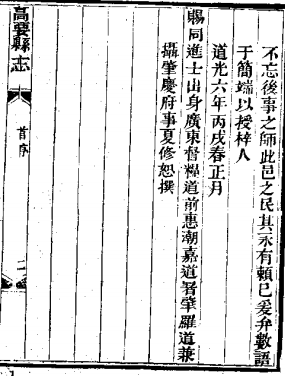 不忘後事之師此邑之民其永有賴已爰弁數語
于簡端以授梓人
道光六年丙戌春正月
賜同進士出身廣東督糧道前惠潮嘉道署肇羅道兼
攝肇慶府事夏修恕撰
高要縣志
首序